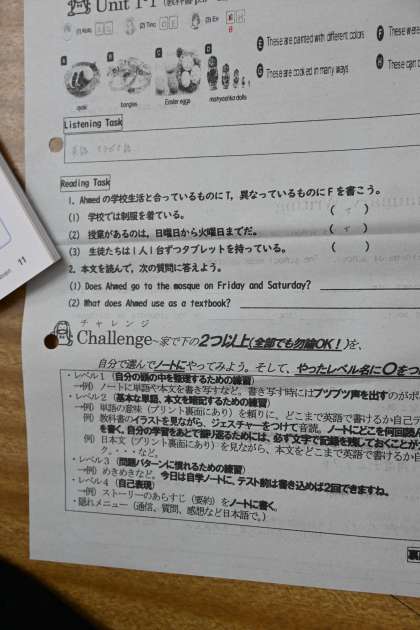 Unit 1-1
(1) Kota
(2) Tina
(3) Eri
A
B
C
D
okaki
bangles
Easter eggs
matryoshka dolls
E These are painted with different colors
F These were
G These are cooked in many ways
H These can b
Listening Task
Reading Task
1. Ahmedの学校生活と合っているものにT，異なっているものにFを書こう。
(1) 学校では制服を着ている。 ( )
(2) 授業があるのは、日曜日から火曜日までだ。 ( )
(3) 生徒たちは1人1台ずつタブレットを持っている。 ( )
2. 本文を読んで，次の質問に答えよう。
(1) Does Ahmed go to the mosque on Friday and Saturday?
(2) What does Ahmed use as a textbook?
11
チャレンジ
Challenge~家で下の2つ以上(全部でも勿論OK！)を、
自分で選んでノートにやってみよう。そして、やったレベル名に〇をつ
・レベル1（自分の頭の中を整理するための練習）
→例）ノートに単語や本文を書き写すなど。書き写す時にはブツブツ声を出すのがポ
・レベル2（基本な単語、本文を暗記するための練習）
→例）単語の意味（プリント裏面にあり）を頼りに、どこまで英語で書けるか自己テ
例）教科書のイラストを見ながら、ジェスチャーをつけて音読。ノートにどこを何回読ん
を書く。自分の学習をあとで振り返るためには、必ず文字で記録を残しておくことが
例）日本文（プリント裏面にあり）を見ながら、本文をどこまで英語で書けるか自
ク。・・・など。
・レベル3（問題パターンに慣れるための練習）
→例）めきめきなど。今日は自学ノートに、テスト前は書き込めば2回できますね。
・レベル4（自己表現）
→例）ストーリーのあらすじ（要約）をノートに書く。
・隠れメニュー（通信、質問、感想など日本語で。）